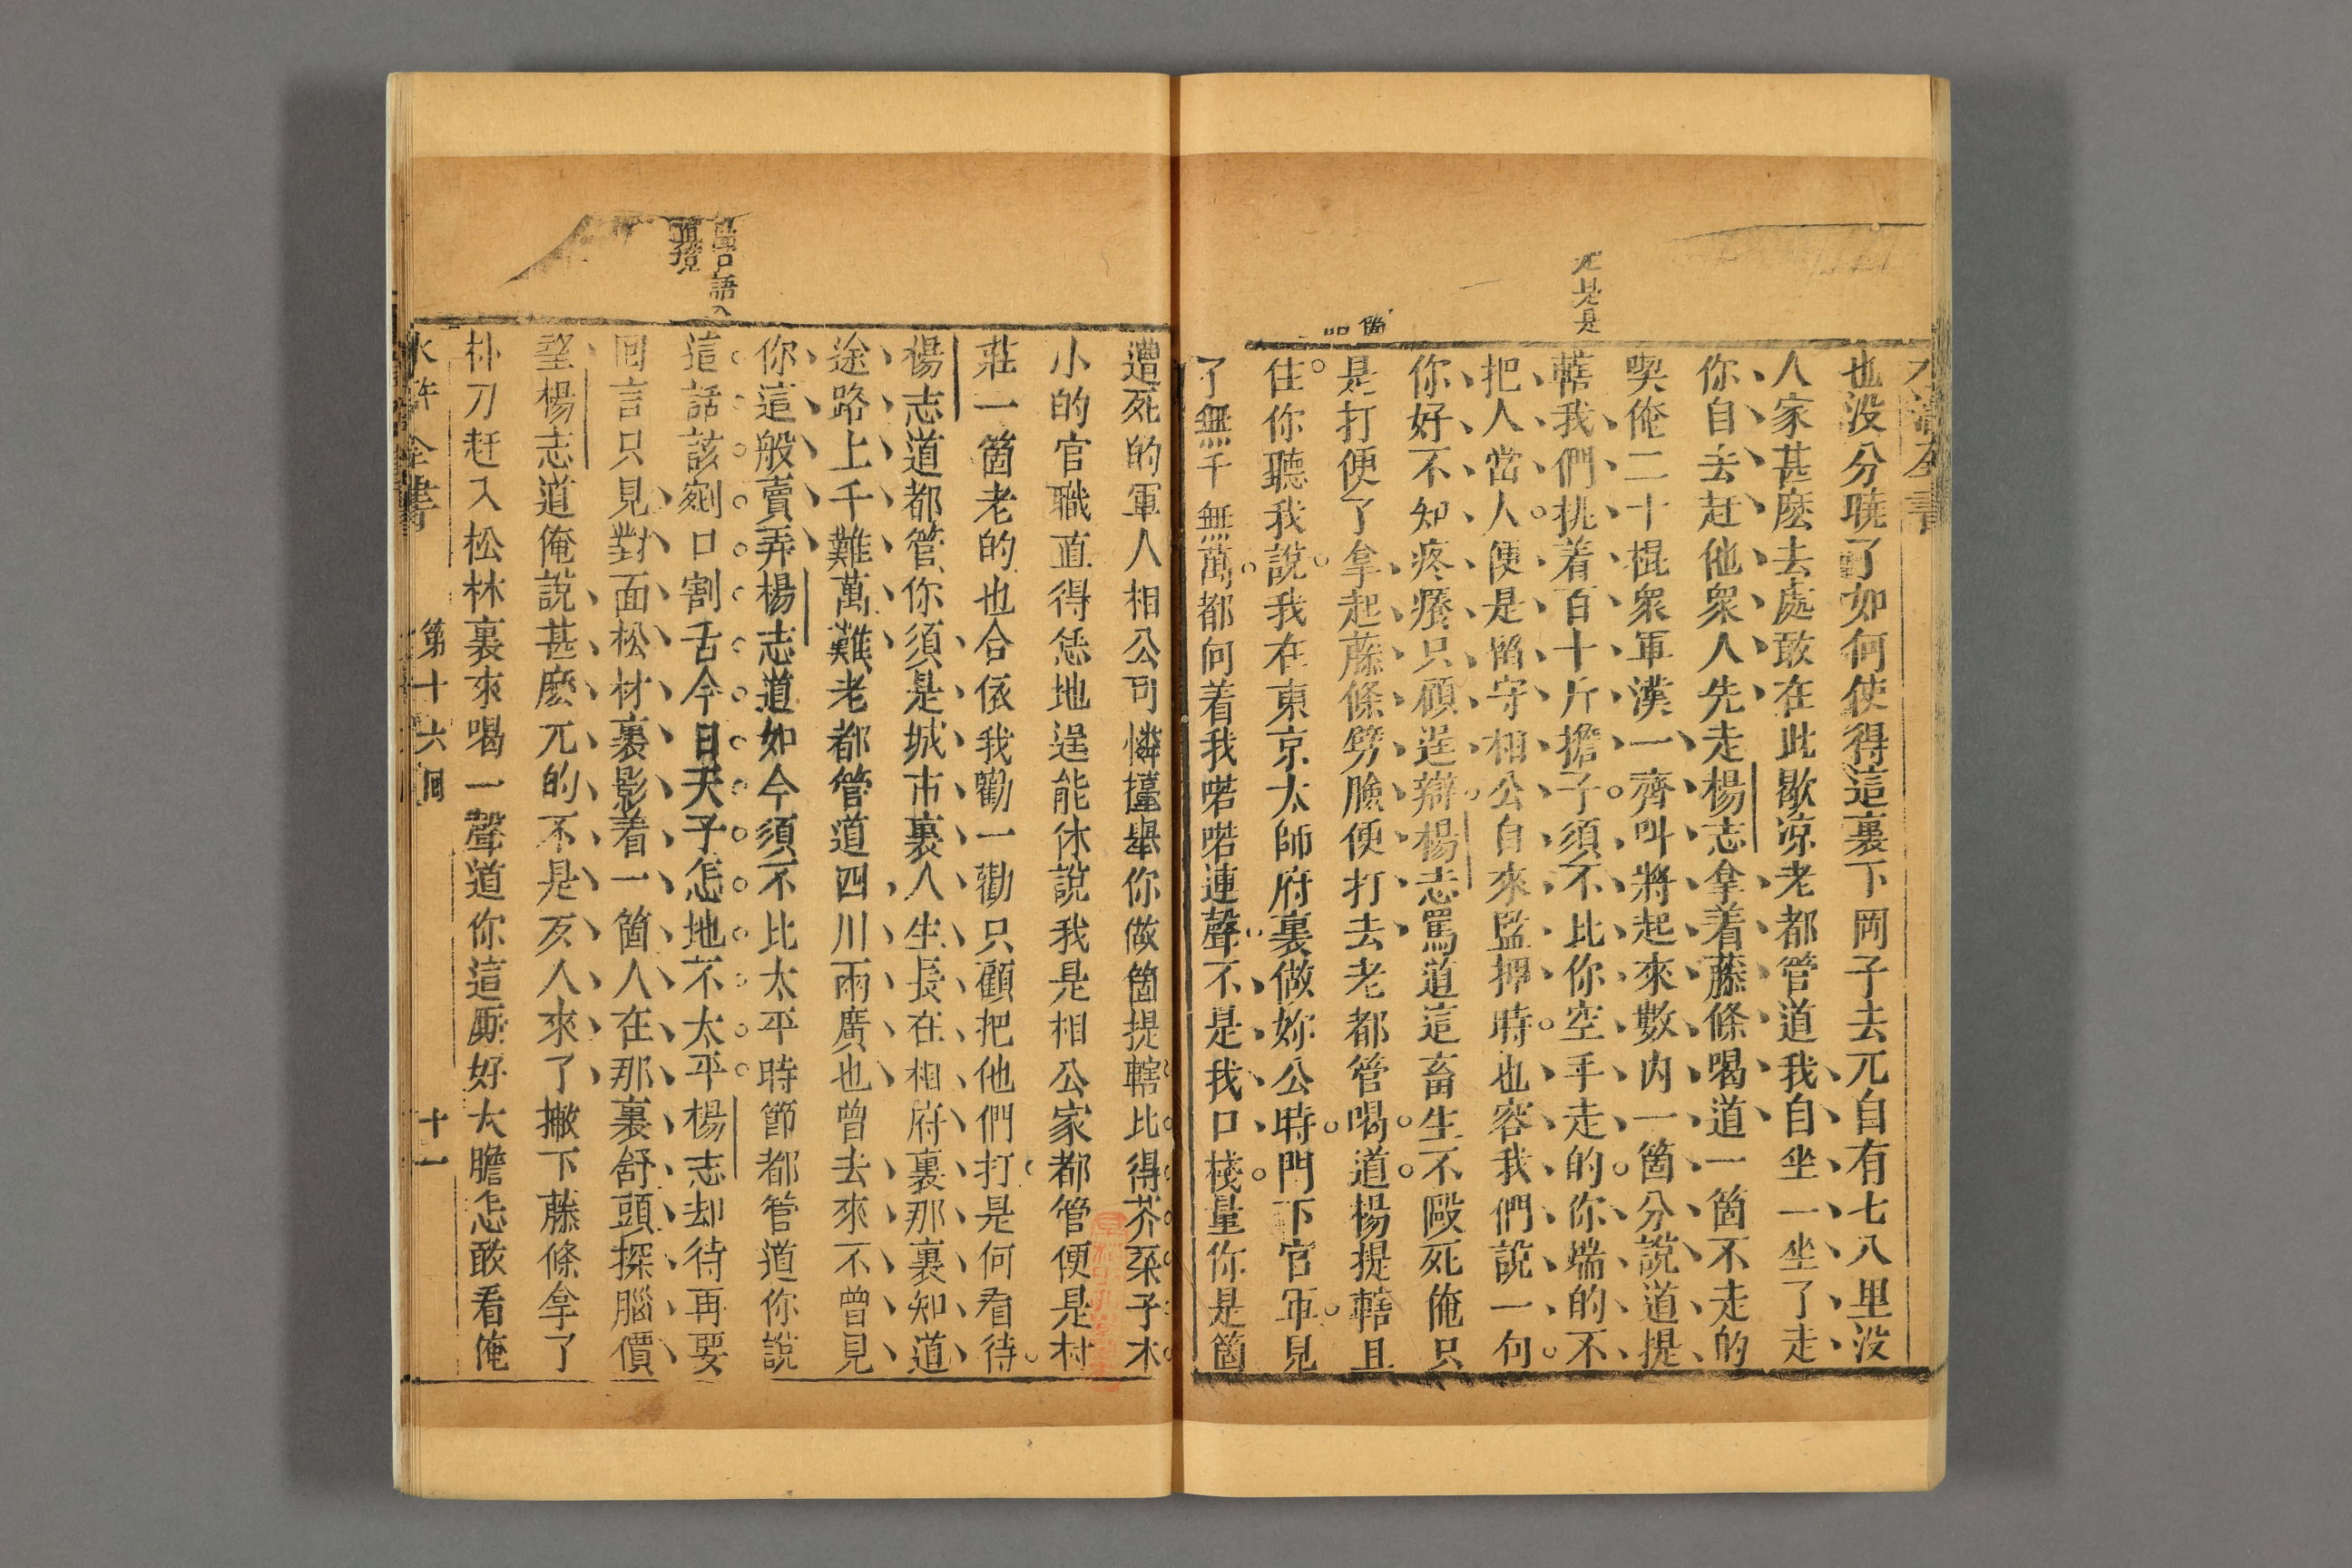 水滸全書
也没分曉了如何使得這裏下岡子去兀自有七八里没
人家甚麽去處敢在此歇凉老都管道我自坐一坐了走
你自去赶他衆人先走楊志拿着藤條喝道一箇不走的
喫俺二十棍衆軍漢一齊叫將起來數内一箇分說道提
轄我們挑着百十斤擔子須不比你空手走的你端的不
把人當人便是留守相公自來監押時也容我們說一句
你好不知疼癢只顧逞辯楊志罵道這畜生不毆死俺只
是打便了拿起藤條劈臉便打去老都管喝道楊提轄且
住你聽我說我在東京太師府裏做妳公時門下官軍見
了無千無萬都向着我喏喏連聲不是我口棧量你是箇
遭死的軍人相公可憐擡舉你做箇提轄比得芥菜子大
小的官職直得恁地逞能休說我是相公家都管便是村
莊一箇老的也合依我勸一勸只顧把他們打是何看待
楊志道都管你須是城市裏人生長在相府裏那裏知道
途路上千難萬難老都管道四川兩廣也曾去來不曾見
你這般賣弄楊志道如今須不比太平時節都管道你說
這話該剜口割舌今日天子怎地不太平楊志却待再要
回言只見對面松林裏影着一箇人在那裏舒頭探腦價
望楊志道俺說甚麽兀的不是歹人來了撇下藤條拿了
朴刀赶入松林裏來喝一聲道你這厮好大膽怎敢看俺
水滸全書 第十六回 十一